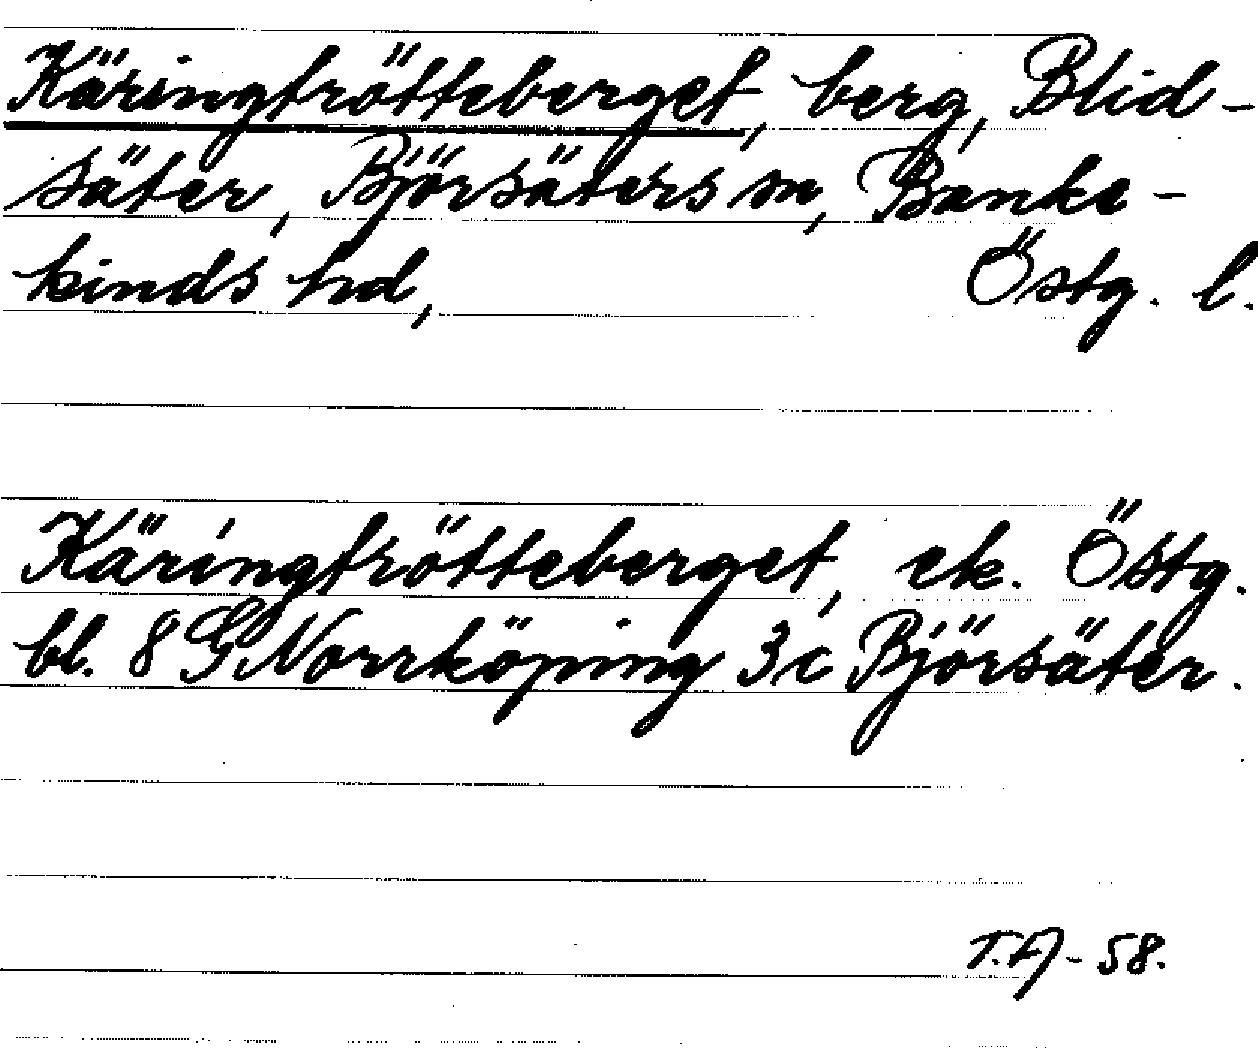 Käringtrötteberget, berg, Blid-
säter, Björsäters sn, Banke-
kinds hd, Östg. l.
Käringtrötteberget, ek. Östg.
bl. 8 G Norrköping 3c Björsäter.
T.A-58.